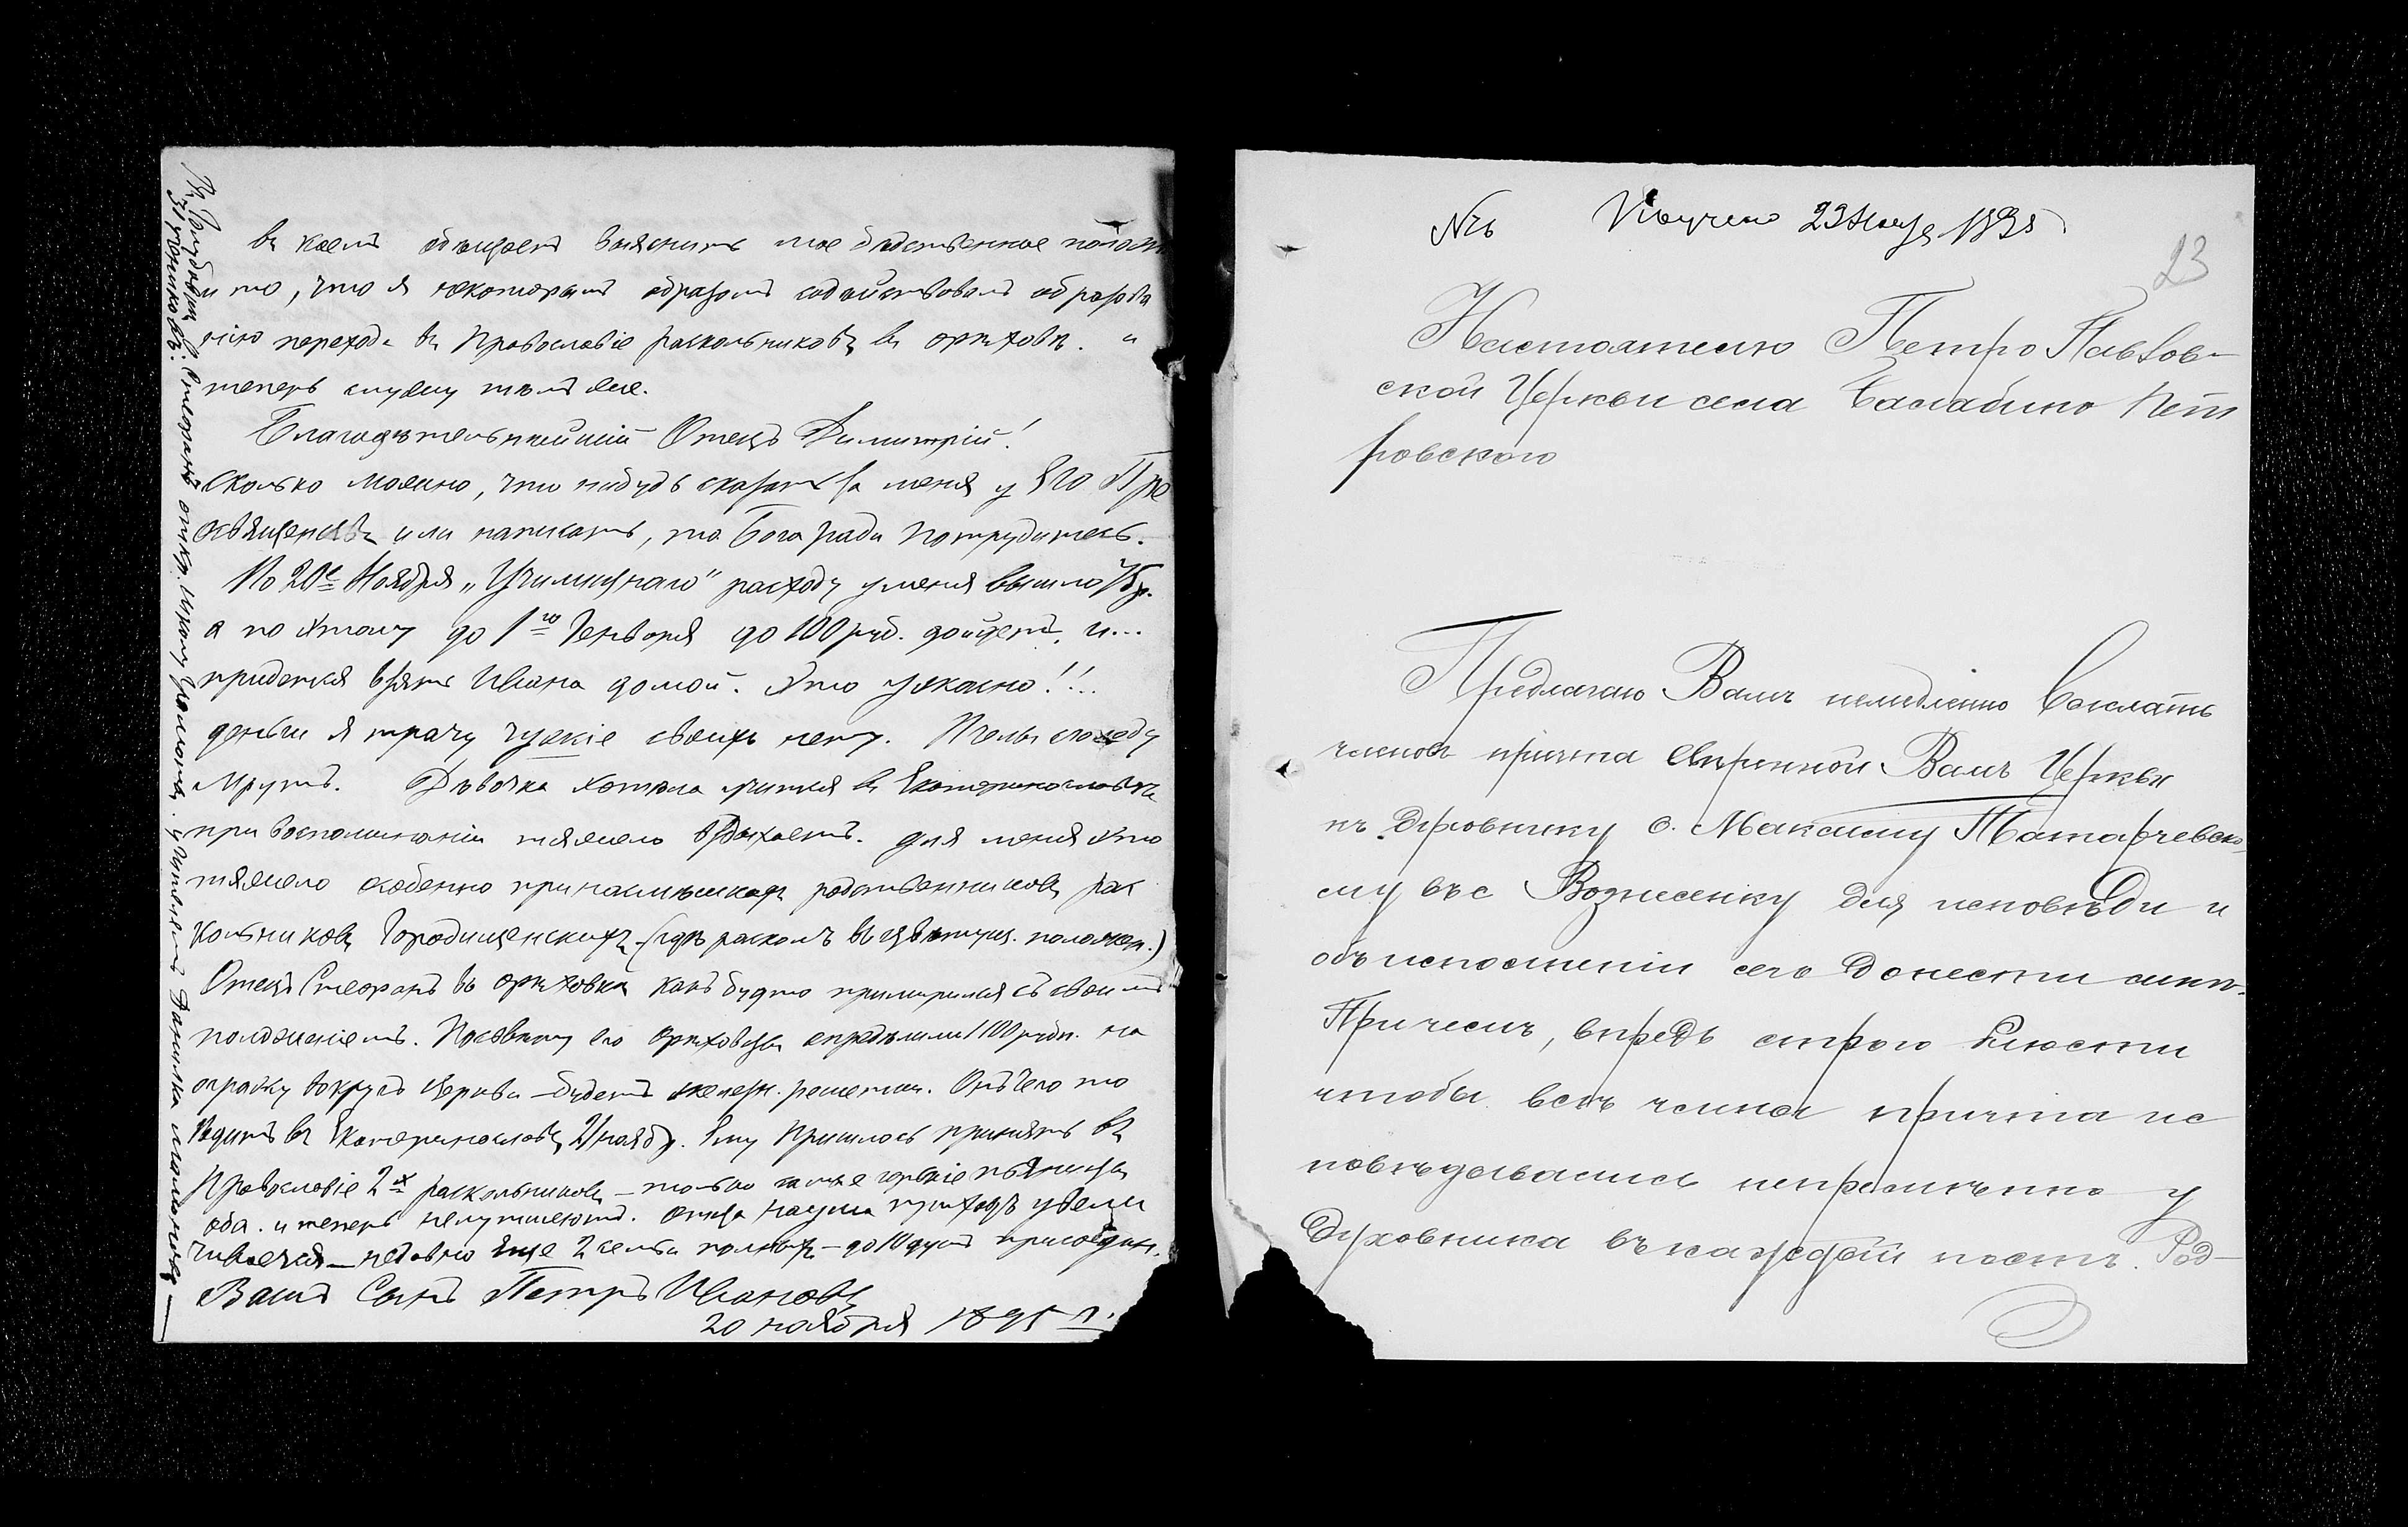 въ коемъ обѣщаетъ выяснить мое бѣдственное положен
и то, что я некоторымъ образомъ содѣйствовалъ образова
нію перехода въ Православіе раскольниковъ въ орѣховѣ. и
теперь служу тѣмъ же.
Благодѣтельнѣйшій Отецъ Димитрій!
Сколько можно, что нибудь сказать за меня у Его Пре
освященства или написать, то Бога ради потрудитесь.
По 20е Ноября „Училищнаго" расходу у меня вышло 75 р.
а по этому до 1го Генваря до 100 руб. дойдетъ, и...
придется взять Ивана домой. Это ужасно!!...
деньги я трачу чужіе своихъ нету. Пчелы съ голоду
Мрутъ. Дѣвочка хотѣла учится въ Екатеринославѣ
при воспоминаніи тяжело вздыхаетъ. для меня это
тяжело особенно при насмѣшкахъ родственниковъ рас
кольниковъ Городищенскихъ (гдѣ расколъ въ цвѣтущ. положен.)
Отецъ Стефанъ въ орѣховѣ какъ будто примирился съ своимъ
положеніемъ. По совѣту его орѣховцы опредѣлили 1100 рубл. на
ограду вокругъ церкви – будетъ желѣзн. решетка. Отъ чего то
ѣздитъ въ Екатеринославъ 21 ноября. Ему Пришлось принять въ
Православіе 2х раскольниковъ – только также горькіе пьяницы
оба. и теперь не утѣшаютъ. отца Наума приходъ увели
чивается – недавно еще 2 семьи полныхъ – до 10 душъ присоедин.
Вашъ Сынъ Петръ Ивановъ
20 ноября 1895 г.
31 учениковъ.
№ъ Получено 23 Нояб 1895
23
Настоятелю Петро Павлов-
ской Церкви села Балабино Пет
ровского
Предлагаю Вамъ немедленно выслать
членовъ причта ввѣренной Вамъ Церкви
къ духовнику о. Максиму Татарчевско-
му въ с Вознесенку для исповѣди и
объ исполненіи сего донести мнѣ.
Причемъ, впредь строго блюсти
чтобы всѣ члены причта ис
повѣдывались непремѣнно у
Духовника въ каждый постъ. Под-